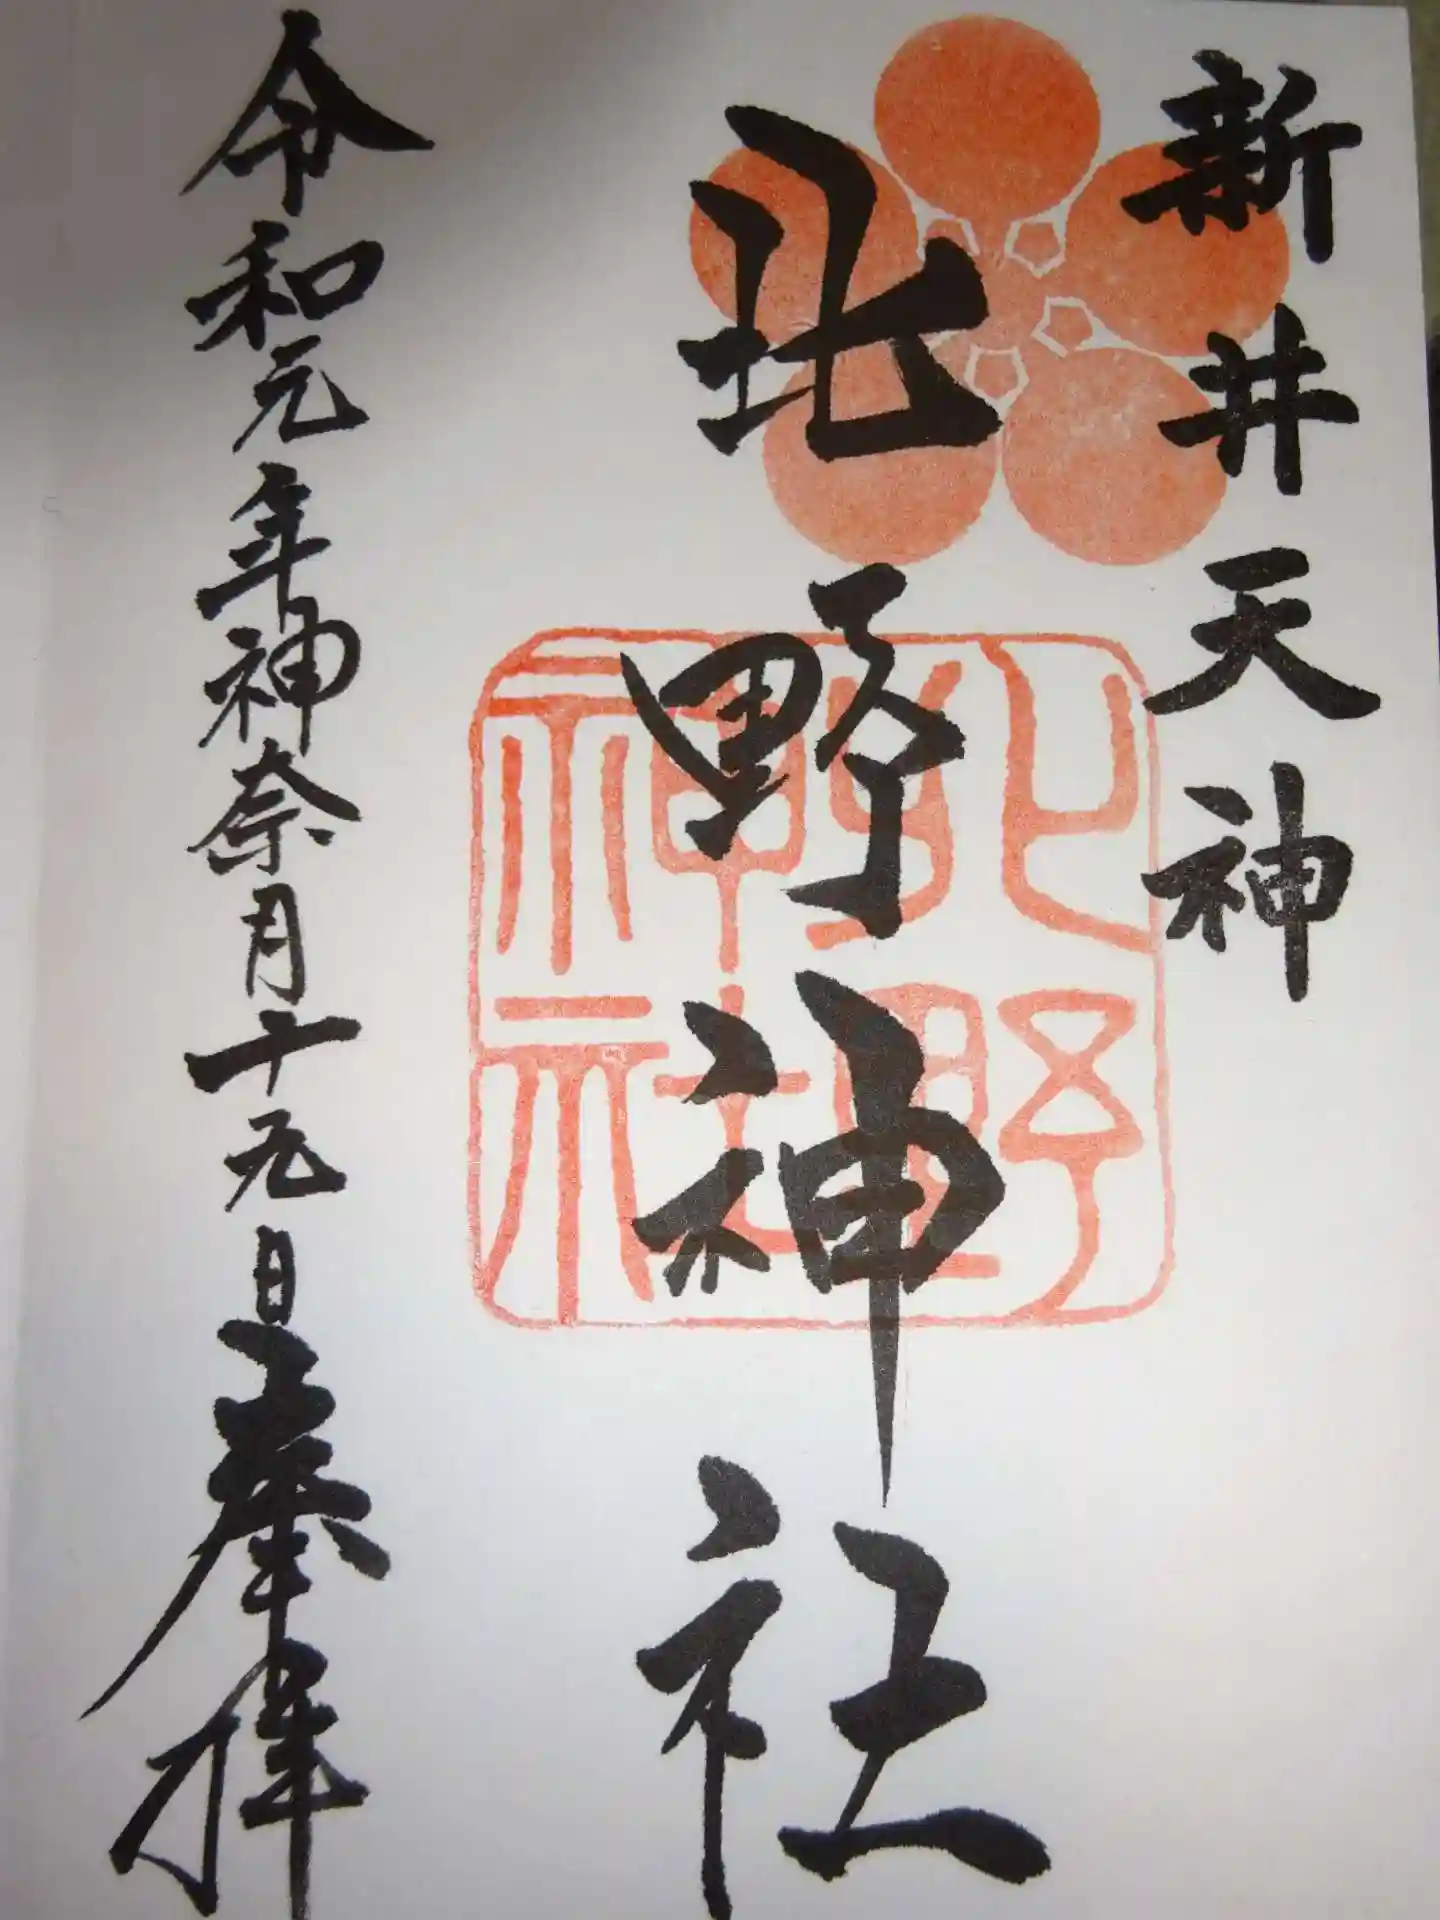 新井天神
北野神社
北野神社
令和元年神奈月十五日奉拝